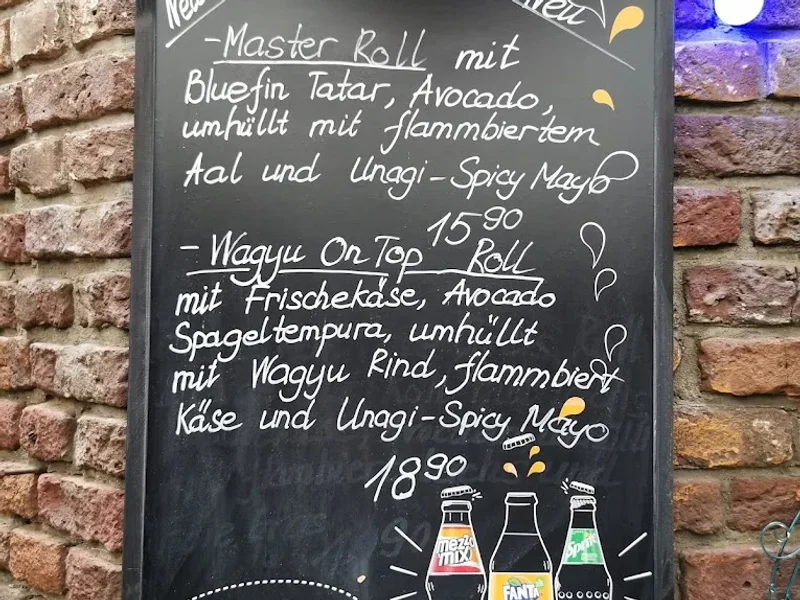 Neu
Neu
- Master Roll mit
Bluefin Tatar, Avocado,
umhüllt mit flammbiertem
Aal und Unagi-Spicy Mayo
15 90
- Wagyu On Top Roll
mit Frischekäse, Avocado
Spageltempura, umhüllt
mit Wagyu Rind, flammbiert
Käse und Unagi-Spicy Mayo
18 90
mezzo mix
FANTA
Sprite